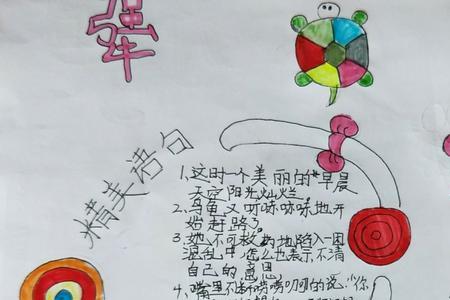 犟
精美语句
1、这时一个美丽的早晨
天空阳光灿烂。
2、乌龟又呼哧呼哧地开
始赶路了。
3、她不可救药地陷入一团
混乱中怎么也表示不清
自己的意思
4、嘴里不断嘀嘀叨叨的